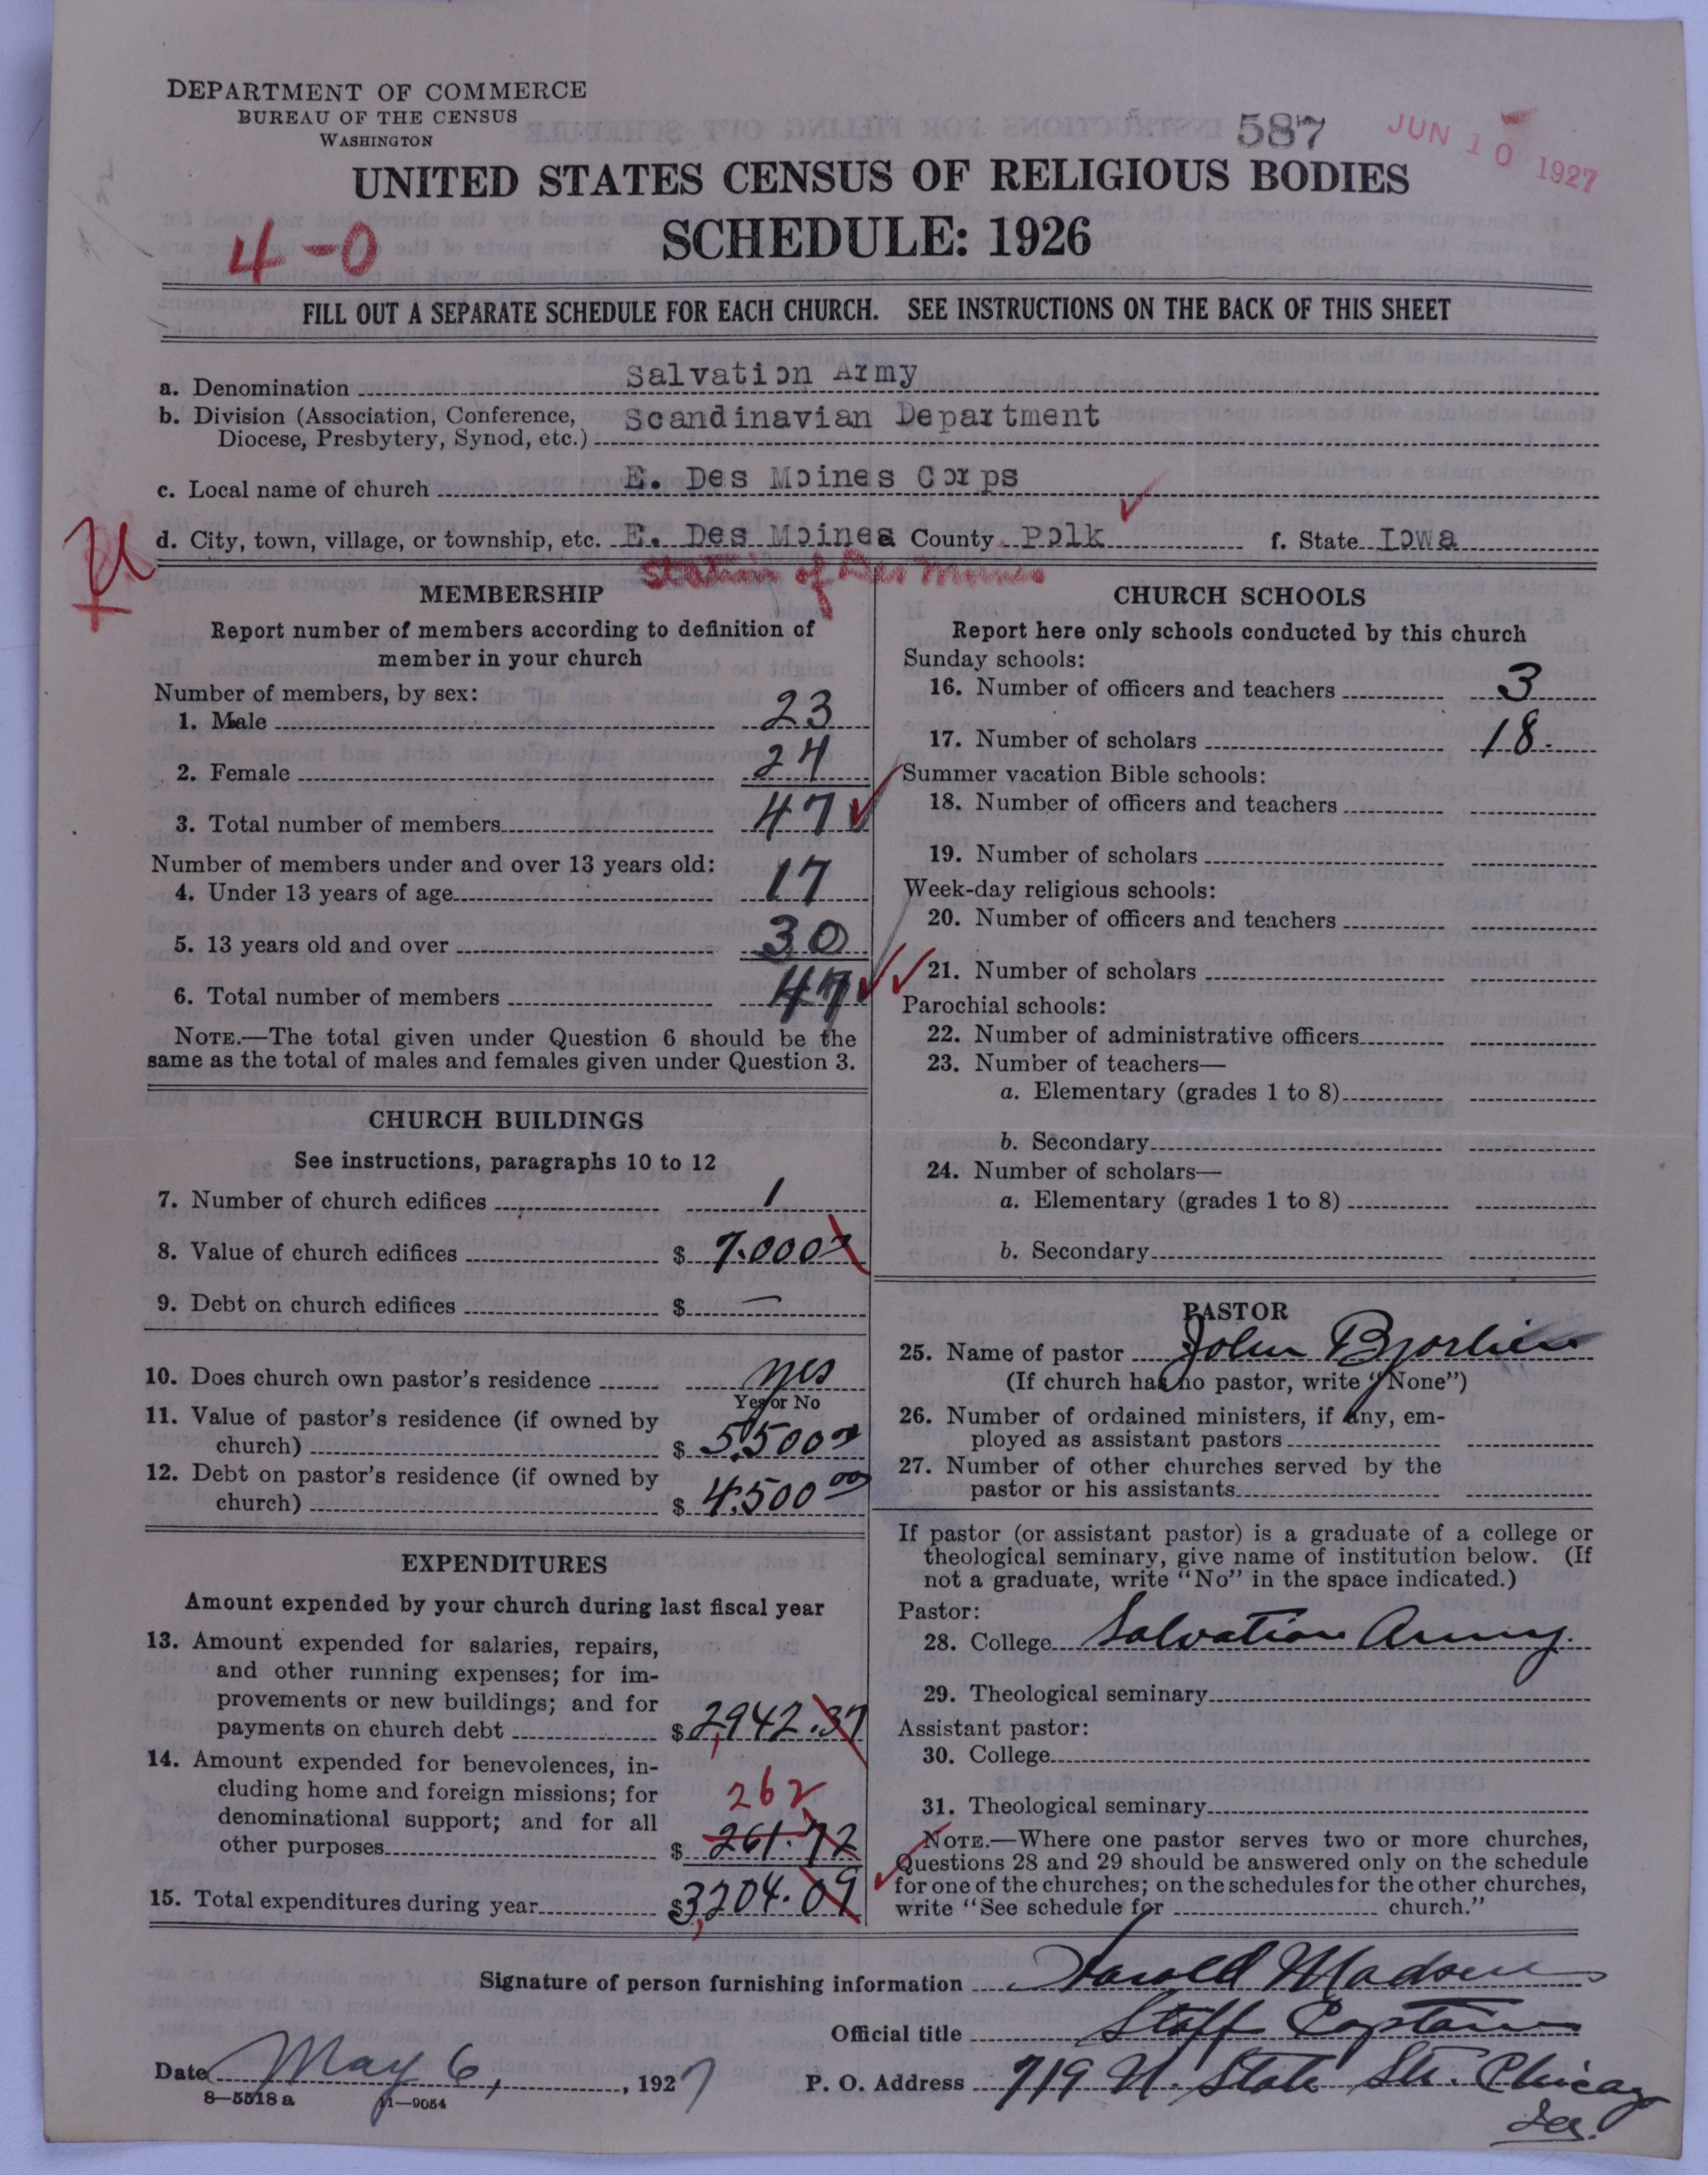 DEPARTMENT OF COMMERCE
BUREAU OF THE CENSUS
WASHINGTON
587
JUN 10 1927
UNITED STATES CENSUS OF RELIGIOUS BODIES
SCHEDULE: 1926
4-0
FILL OUT A SEPARATE SCHEDULE FOR EACH CHURCH. SEE INSTRUCTIONS ON THE BACK OF THIS SHEET
a. Denomination Salvation Army
b. Division (Association, Conference, Diocese, Presbytery, Synod, etc.) Scandinavian Department
c. Local name of church E. Des Moines Corps
d. City, town, village, or township, etc. E. Des Moines County Polk f. State Iowa
Station of Des Moines
MEMBERSHIP
Report number of members according to definition of
member in your church
Number of members, by sex:
1. Male 23
2. Female 24
3. Total number of members 47
Number of members under and over 13 years old:
4. Under 13 years of age 17
5. 13 years old and over 30
6. Total number of members 47
NOTE.—The total given under Question 6 should be the
same as the total of males and females given under Question 3.
CHURCH BUILDINGS
See instructions, paragraphs 10 to 12
7. Number of church edifices 1
8. Value of church edifices $ 7.000
9. Debt on church edifices $ —
10. Does church own pastor's residence yes
Yes or No
11. Value of pastor's residence (if owned by
church) $ 5.500 00
12. Debt on pastor's residence (if owned by
church) $ 4.500 00
EXPENDITURES
Amount expended by your church during last fiscal year
13. Amount expended for salaries, repairs,
and other running expenses; for im-
provements or new buildings; and for
payments on church debt $ 2,942.37
14. Amount expended for benevolences, in-
cluding home and foreign missions; for
denominational support; and for all
262
other purposes $ 261.72
15. Total expenditures during year $3,204.09
CHURCH SCHOOLS
Report here only schools conducted by this church
Sunday schools:
16. Number of officers and teachers 3
17. Number of scholars 18.
Summer vacation Bible schools:
18. Number of officers and teachers
19. Number of scholars
Week-day religious schools:
20. Number of officers and teachers
21. Number of scholars
Parochial schools:
22. Number of administrative officers
23. Number of teachers—
a. Elementary (grades 1 to 8)
b. Secondary
24. Number of scholars—
a. Elementary (grades 1 to 8)
b. Secondary
PASTOR
25. Name of pastor John
(If church has no pastor, write "None")
26. Number of ordained ministers, if any, em-
ployed as assistant pastors
27. Number of other churches served by the
pastor or his assistants
If pastor (or assistant pastor) is a graduate of a college or
theological seminary, give name of institution below. (If
not a graduate, write "No" in the space indicated.)
Pastor:
28. College Salvation Army.
29. Theological seminary
Assistant pastor:
30. College
31. Theological seminary
NOTE.—Where one pastor serves two or more churches,
Questions 28 and 29 should be answered only on the schedule
for one of the churches; on the schedules for the other churches,
write "See schedule for church."
Signature of person furnishing information Harold Madsen
Official title Staff Captain
Date May 6, 1927 P. O. Address 719 N. State Str. Chicago
Ill.
8—5518 a 11—9054